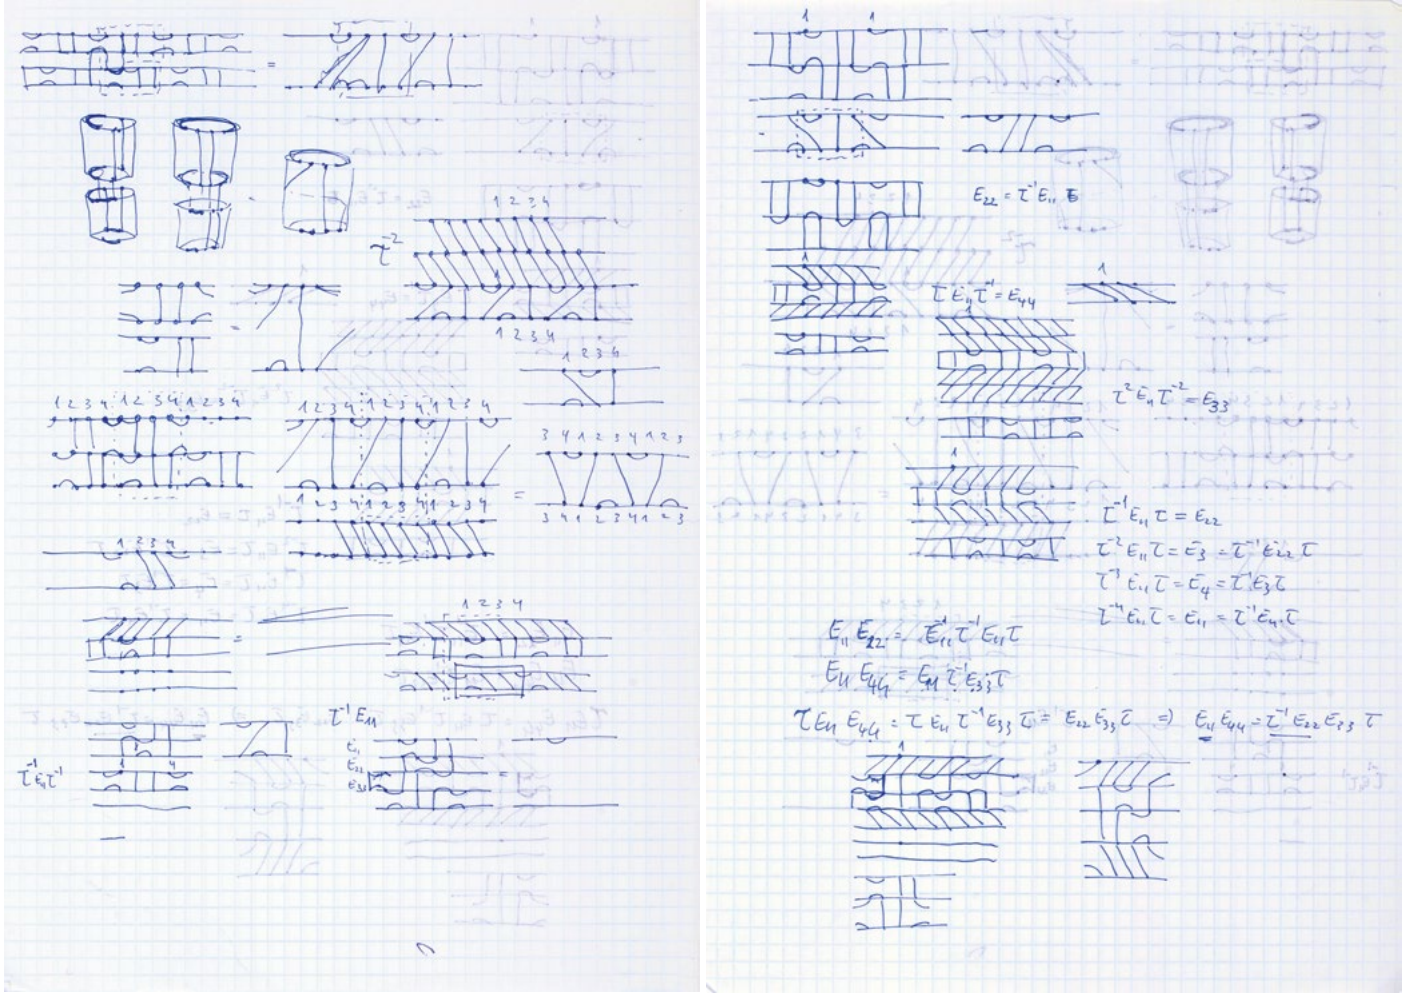 1 2 3 4
τ⁻²
1 2 3 4
1 2 3 4
1 2 3 4 1 2 3 4 1 2 3 4
1 2 3 4 1 2 3 4 1 2 3 4
3 4 1 2 3 4 1 2 3
=
1 2 3 4 1 2 3 4 1 2 3 4
3 4 1 2 3 4 1 2 3
1 2 3 4
1 2 3 4
=
τ⁻¹ E₁₁
τ⁻¹ E₁₁ τ⁻¹
1 4
1 1
E₂₂ = τ⁻¹ E₁₁ τ
1
τ E₁₁ τ⁻¹ = E₄₄
1
τ² E₁₁ τ⁻² = E₃₃
1
τ⁻¹ E₁₁ τ = E₂₂
τ⁻² E₁₁ τ = E₃ = τ⁻¹ E₂₂ τ
τ⁻³ E₁₁ τ = E₄ = τ⁻¹ E₃ τ
τ⁻⁴ E₁₁ τ = E₁₁ = τ⁻¹ E₄ τ
E₁₁ E₂₂ = E₁₁ τ⁻¹ E₁₁ τ
E₁₁ E₄₄ = E₁₁ τ⁻¹ E₃₃ τ
τ E₁₁ E₄₄ = τ E₁₁ τ⁻¹ E₃₃ τ = E₂₂ E₃₃ τ ⇒ E₁₁ E₄₄ = τ⁻¹ E₂₂ E₃₃ τ
1